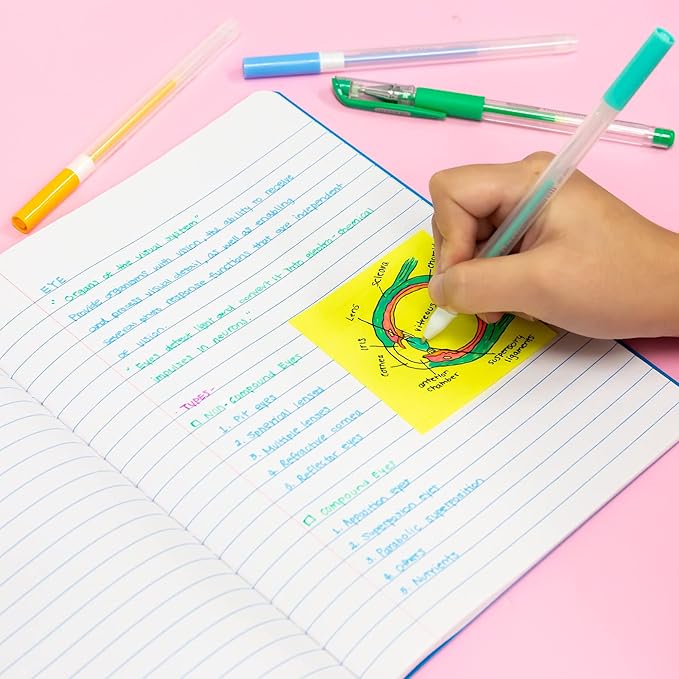 EYE
" Organs of the visual system"
Provide organisms with vision, the ability to receive
and process visual detail, as well as enabling
several photo response functions that are independent
of vision.
" Eyes detect light and convert it into electro-chemical
impulses in neurons"
TYPES-
Non-Compound Eyes
1. Pit eyes
2. Spherical lensed
3. Multiple lenses
4. Refractive cornea
5. Reflector eyes
Compound Eyes
1. Apposition eyes
2. Superposition eyes
3. Parabolic superposition
4. Others
5. Nutrients
sclera
Lens
Iris
cornea
vitreous
anterior
chamber
suspensory
ligaments